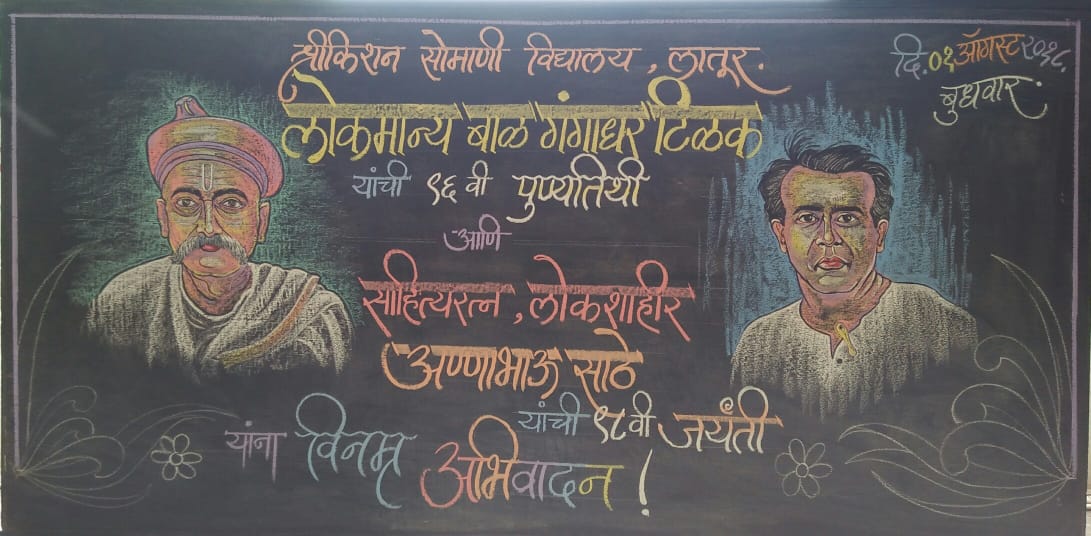 श्रीकिशन सोमाणी विद्यालय, लातूर.
दि.०१ ऑगस्ट २०१८.
बुधवार.
लोकमान्य बाळ गंगाधर टिळक
यांची ९६ वी पुण्यतिथी
आणि
साहित्यरत्न, लोकशाहीर
अण्णाभाऊ साठे
यांची ९८वी जयंती
यांना विनम्र अभिवादन!